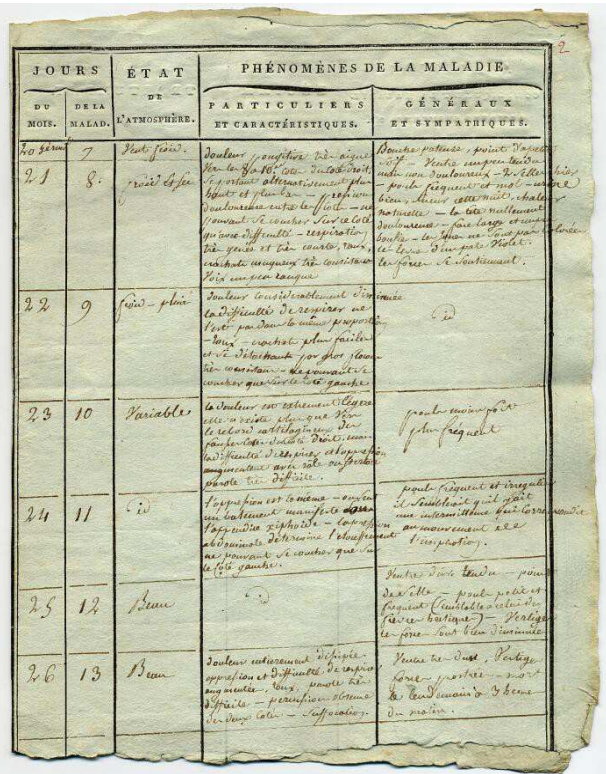 2
JOURS
ÉTAT
DE
L'ATMOSPHÈRE.
PHÉNOMÈNES DE LA MALADIE
DU
MOIS.
DE LA
MALAD.
PARTICULIERS
ET CARACTÉRISTIQUES.
GÉNÉRAUX
ET SYMPATHIQUES.
20
7
Vent froid.
21
8.
froid et sec
douleur pongitive très aigue
vers les 9 a 10e cotes du coté droit,
se portant alternativement plus
haut et plus bas — pression
douloureuse entre les cotes — ne
pouvant se coucher sur ce coté
qu'avec difficulté — respiration
très genée et très courte, toux,
crachats muqueux très consistans
Voix un peu rauque
Bouche pateuse, point d'apetit
soif — Ventre un peu tendu
mais non douloureux — 2 selles hier
— pouls fréquent et mol — urine
bien, sueur cette nuit, chaleur
naturelle — la tête nullement
douloureuse — face large et un peu
bouffie — les
violet.
les forces se soutiennent.
22
9
froid — pluie
douleur considérablement diminuée
la difficulté de respirer ne
l'est pas dans la même proportion
— toux — crachats plus faciles
et se détachant par gros flocons
très consistans — ne pouvant se
coucher que sur le coté gauche
id
23
10
Variable
la douleur est extrement légère
elle n'existe plus que vers
le rebord cartilagineux des
fausses cotes du coté droit. mais
la difficulté de respirer et l'oppression
augmentent avec râle
parole très difficile.
pouls moins fort
plus fréquent
24
11
id
l'oppression est la même — on sent
un batement manifeste dans
l'appendice xiphoïde — la pression
abdominale détermine l'étouffement
ne pouvant se coucher que sur
le coté gauche.
pouls fréquent et irregulier
il sembleroit qu'il y ait
une intermittence qui correspondrait
au mouvement de
l'inspiration.
25
12
Beau
id
Ventre dur tendu — point
de selle — pouls petit et
fréquent (semblable à celui des
fievres hectiques) — Vertige
les forces sont bien diminuées
26
13
Beau
douleur entierement dissipée
oppression et difficulté de respirer
augmentées, toux, parole très
difficile — percussion obscure
des deux cotés — suffocation.
Ventre très dur, Vertige
forces perdues — mort
le lendemain à 3 heures
du matin.